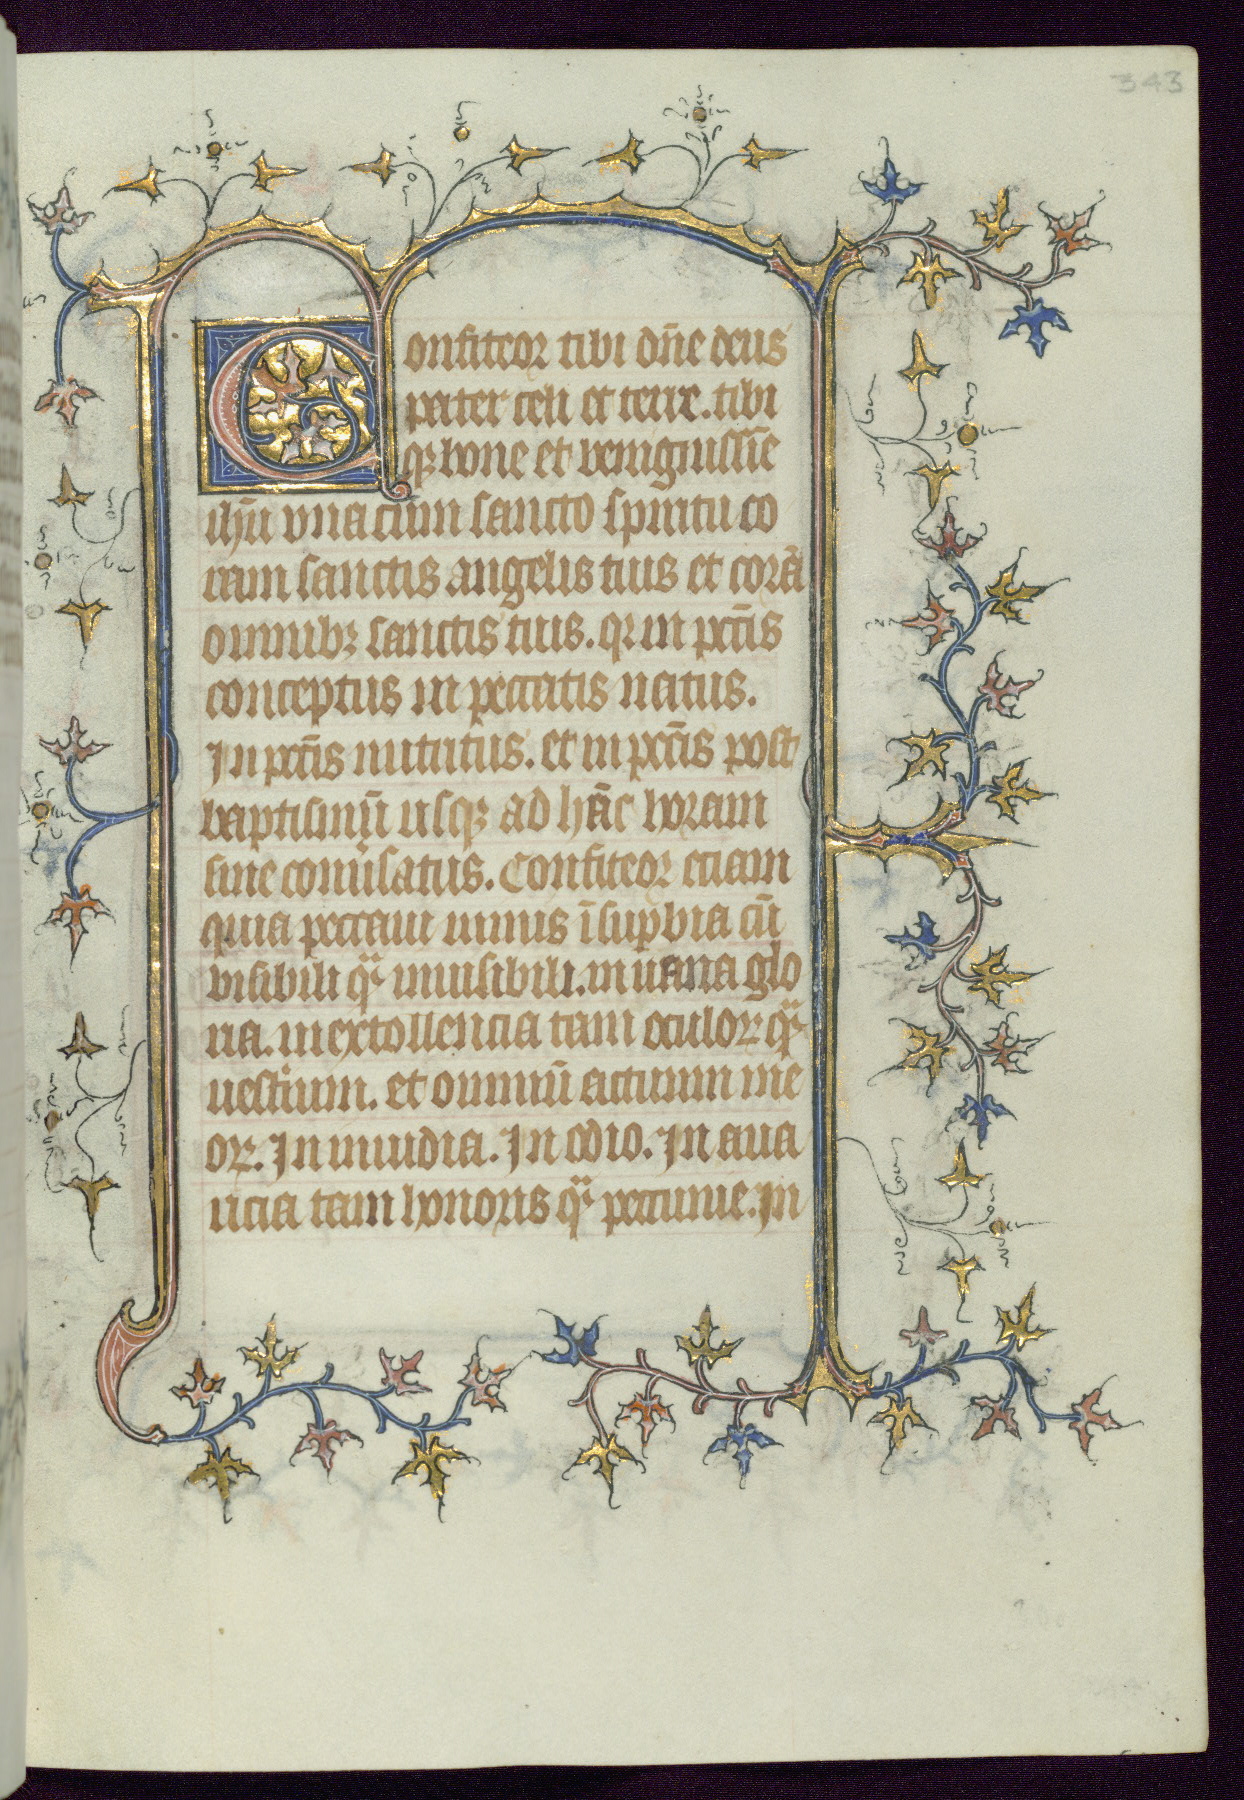 343
Confiteor tibi dñe deus
pater celi et terre. tibi
qꝫ bone et benignissīe
ihū vna cum sancto spiritu co
ram sanctis angelis tuis et corā
omnibꝫ sanctis tuis. qꝛ in pctīs
conceptus in peccatis natus.
In pctīs nutritus. et in pctīs post
baptismū usqꝫ ad hāc horam
sine conuˀsatus. Confiteor etiam
quia peccaui nimis ī suꝑbia tā
visibili qͣ inuisibili. in uana glo
ria. in extollencia tam oculoꝝ qͣ
uestium. et omniū actuum me
oꝝ. In inuidia. In odio. In aua
ricia tam honoris qͣ peccunie. In